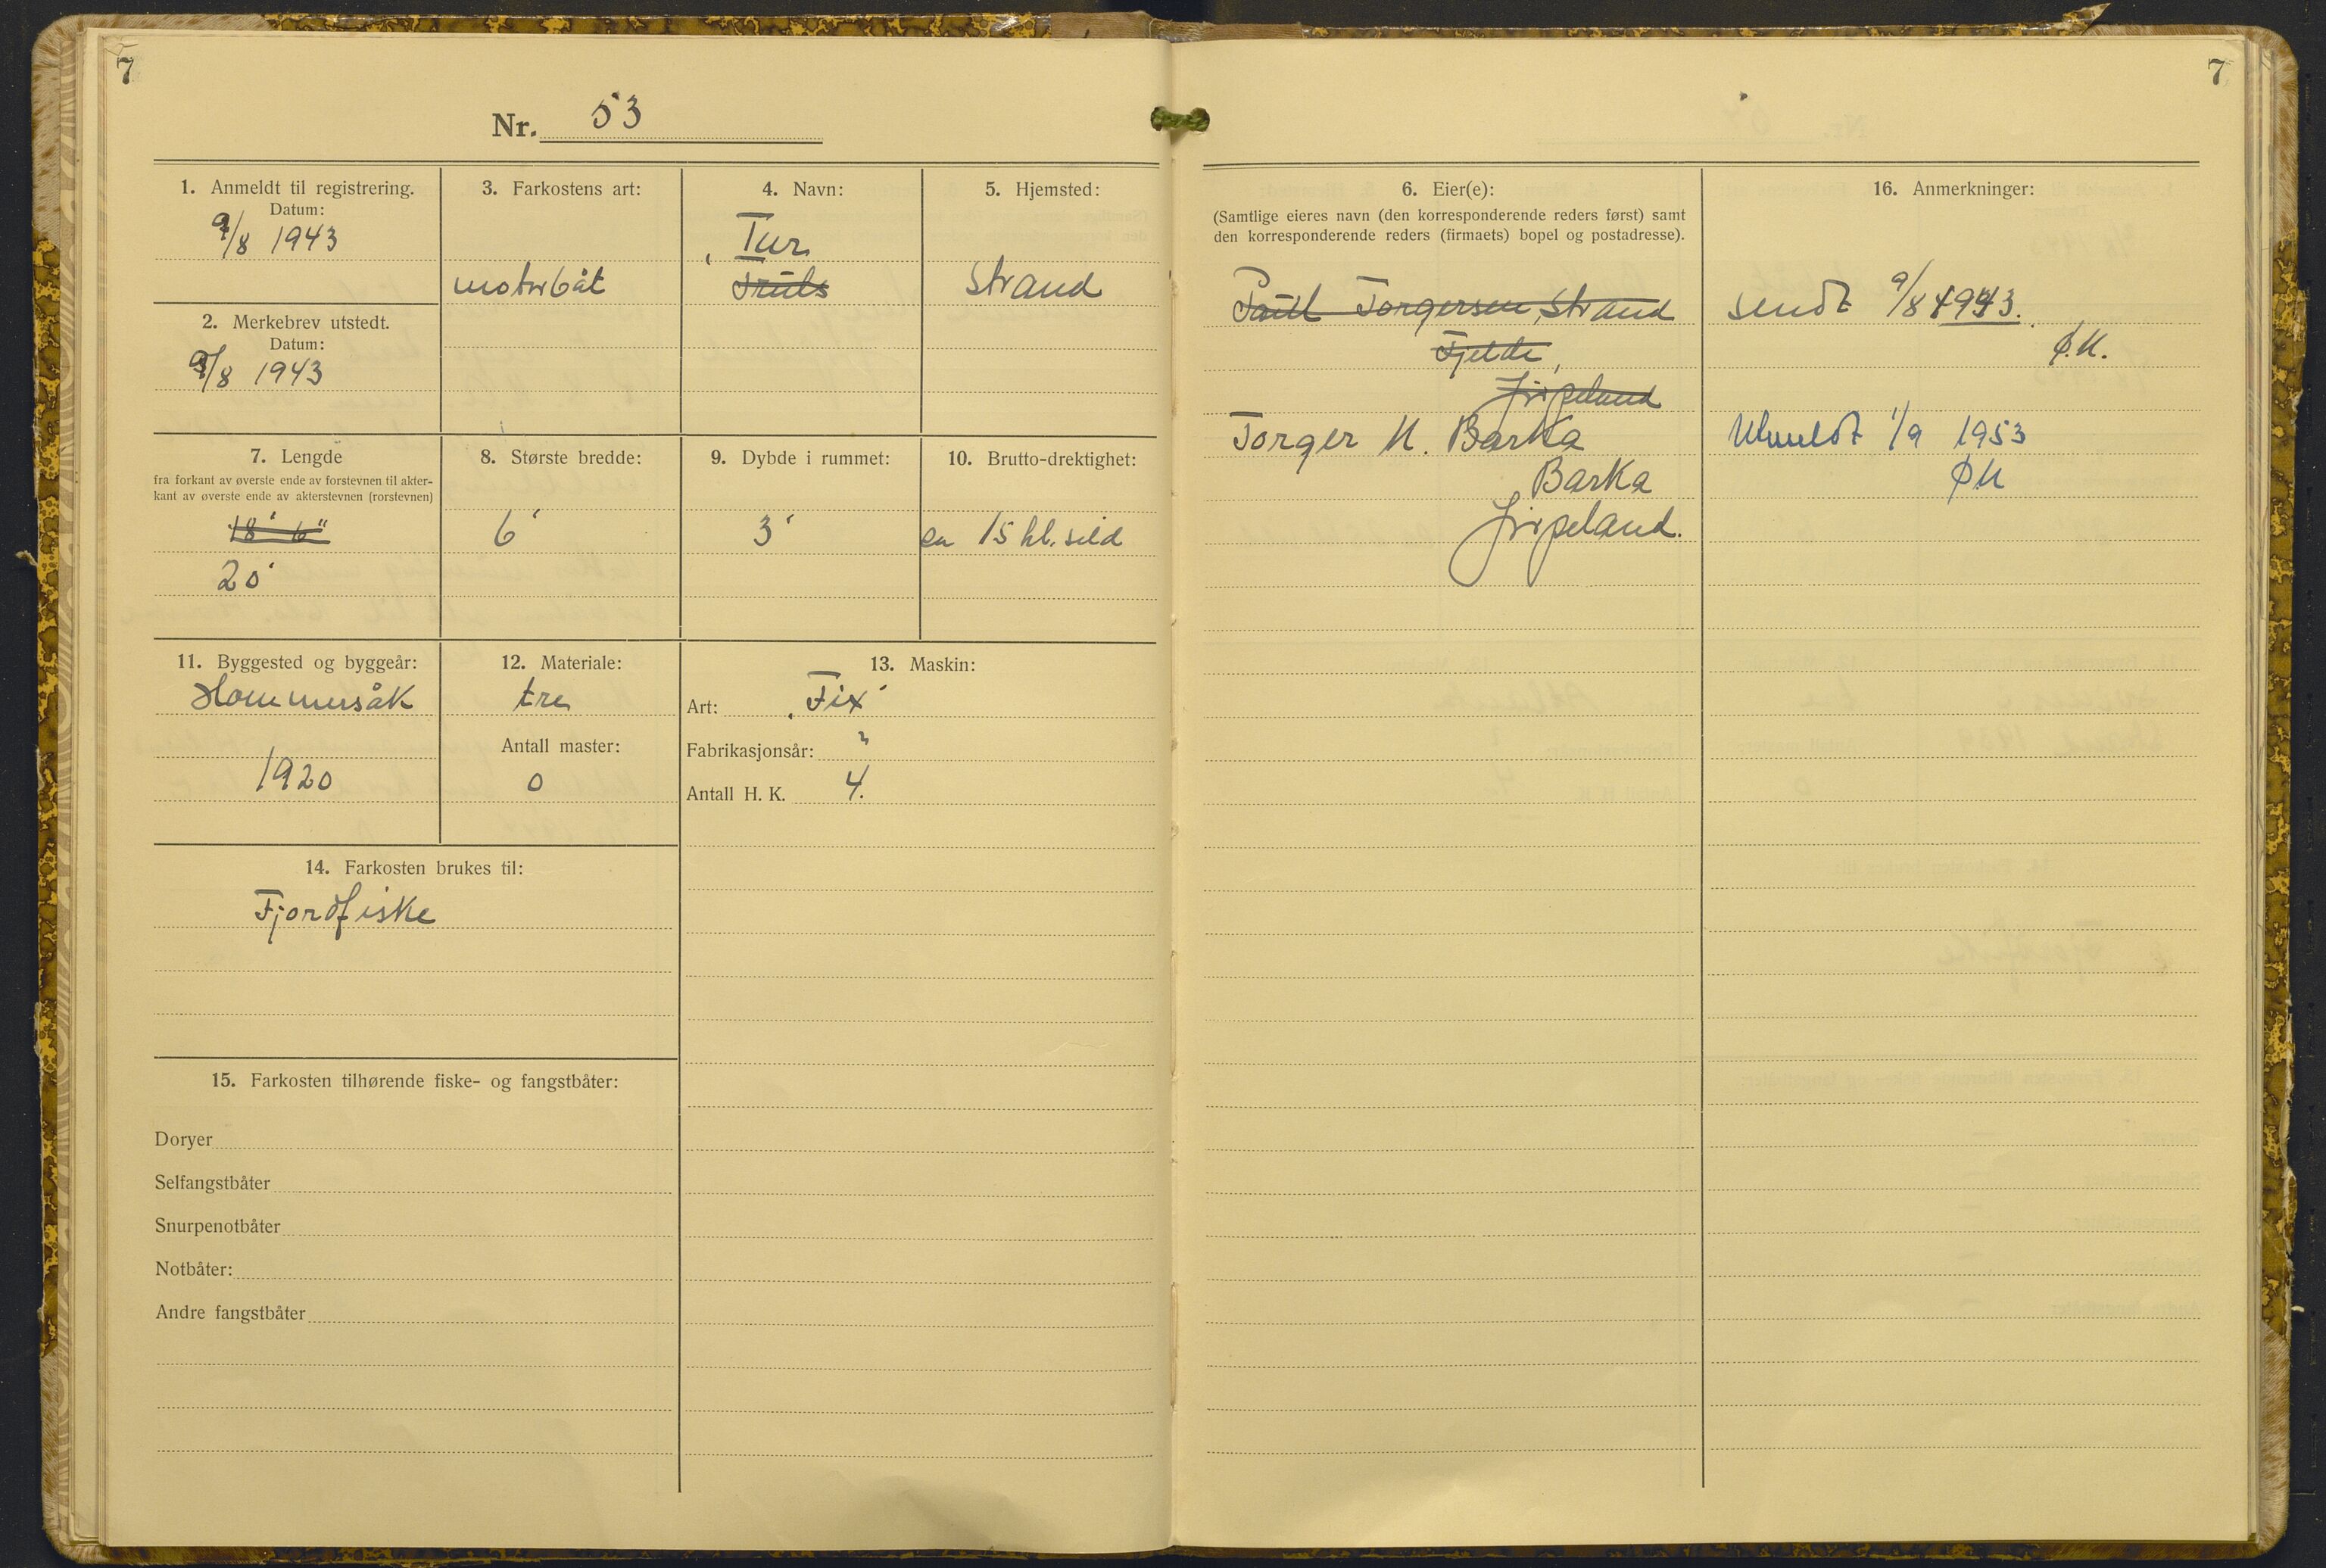 7
Nr. 53
1. Anmeldt til registrering.
Datum:
9/8 1943
2. Merkebrev utstedt.
Datum:
9/8 1943
3. Farkostens art:
motorbåt
4. Navn:
"Tur
Truls
5. Hjemsted:
Strand
7. Lengde
fra forkant av øverste ende av forstevnen til akter-
kant av øverste ende av akterstevnen (rorstevnen)
18' 6"
20'
8. Største bredde:
6'
9. Dybde i rummet:
3'
10. Brutto-drektighet:
ca 15 hl. sild
11. Byggested og byggeår:
Hommersåk
1920
12. Materiale:
tre
Antall master:
0
13. Maskin:
Art: "Fix"
Fabrikasjonsår: ?
Antall H. K. 4.
14. Farkosten brukes til:
Fjordfiske
15. Farkosten tilhørende fiske- og fangstbåter:
Doryer
Selfangstbåter
Snurpenotbåter
Notbåter:
Andre fangstbåter
7
6. Eier(e):
(Samtlige eieres navn (den korresponderende reders først) samt
den korresponderende reders (firmaets) bopel og postadresse).
Paul Torgersen, Strand
Fjelde,
Jørpeland
Torger N. Barka
Barka
Jørpeland.
16. Anmerkninger:
sendt 9/8 1943.
Ø.N.
Utmeldt 1/9 1953
ØN